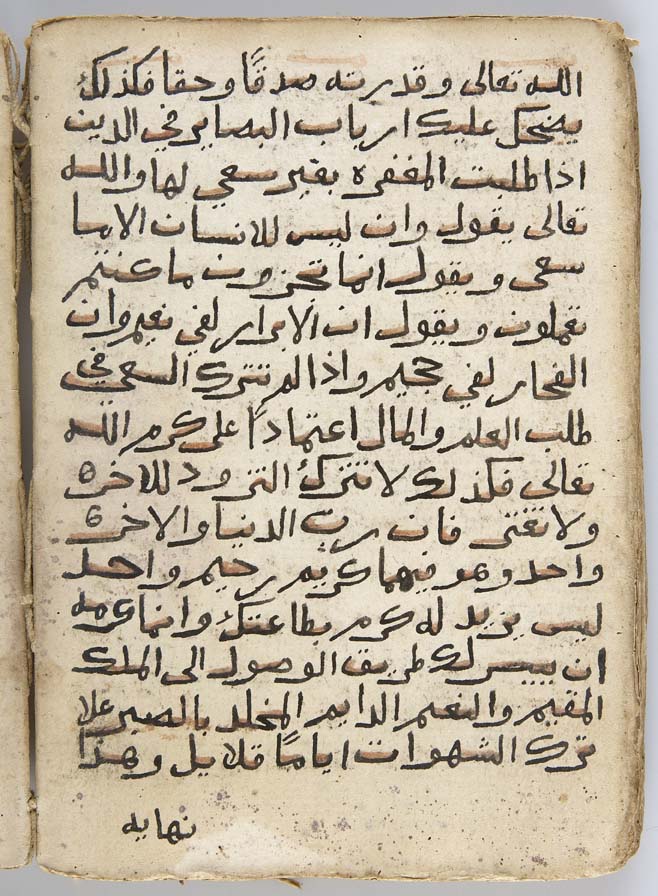 الله تعالى وقدرته صدقًا وحقا فكذلك
يضحك عليك ارباب البصاير في الدين
اذا طلبت المغفره بغير سعي لها والله
تعالى يقول وان ليس للانسان الا ما
سعى ويقول انما تجزون ما كنتم
تعملون ويقول ان الابرار لفي نعيم وان
الفجار لفي جحيم واذا لم تترك السعي في
طلب العلم والمال اعتمادًا على كرم الله
تعالى فكذلك لا تترك التزود للاخرة
ولا تفتى فان رب الدنيا والاخرة
واحد وهو فيهما كريم رحيم واحد
ليس يزيد له كرم بطاعتك وانما كرمه
ان ييسر لك طريق الوصول الى الملك
المقيم والنعيم الدايم المخلد بالصبر علا
ترك الشهوات ايامًا قلايل وهذا
نهايه